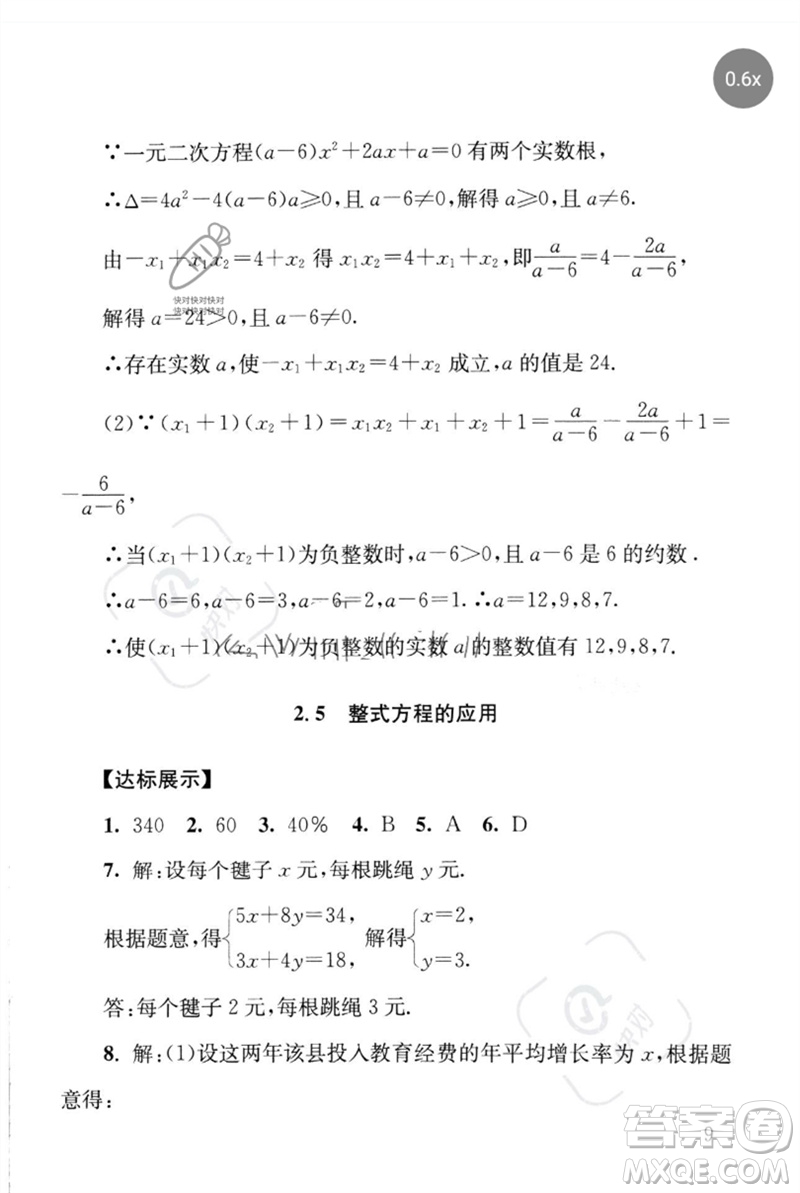 0.6x
∵一元二次方程(a－6)x²＋2ax＋a＝0有两个实数根,
∴Δ＝4a²－4(a－6)a≥0,且a－6≠0,解得a≥0,且a≠6.
由－x₁＋x₁x₂＝4＋x₂得x₁x₂＝4＋x₁＋x₂,即a/(a－6)＝4－2a/(a－6),
快对快对快对
快对快对快对
解得a＝24＞0,且a－6≠0.
∴存在实数a,使－x₁＋x₁x₂＝4＋x₂成立,a的值是24.
(2)∵(x₁＋1)(x₂＋1)＝x₁x₂＋x₁＋x₂＋1＝a/(a－6)－2a/(a－6)＋1＝
－6/(a－6),
∴当(x₁＋1)(x₂＋1)为负整数时,a－6＞0,且a－6是6的约数.
∴a－6＝6,a－6＝3,a－6＝2,a－6＝1.∴a＝12,9,8,7.
快对
∴使(x₁＋1)(x₂＋1)为负整数的实数a的整数值有12,9,8,7.
2.5 整式方程的应用
【达标展示】
1. 340 2. 60 3. 40% 4. B 5. A 6. D
7. 解:设每个毽子x元,每根跳绳y元.
根据题意,得{5x＋8y＝34, 解得{x＝2,
3x＋4y＝18, y＝3.
快对
答:每个毽子2元,每根跳绳3元.
8. 解:(1)设这两年该县投入教育经费的年平均增长率为x,根据题
意得:
9
答案圈
MXQE.COM